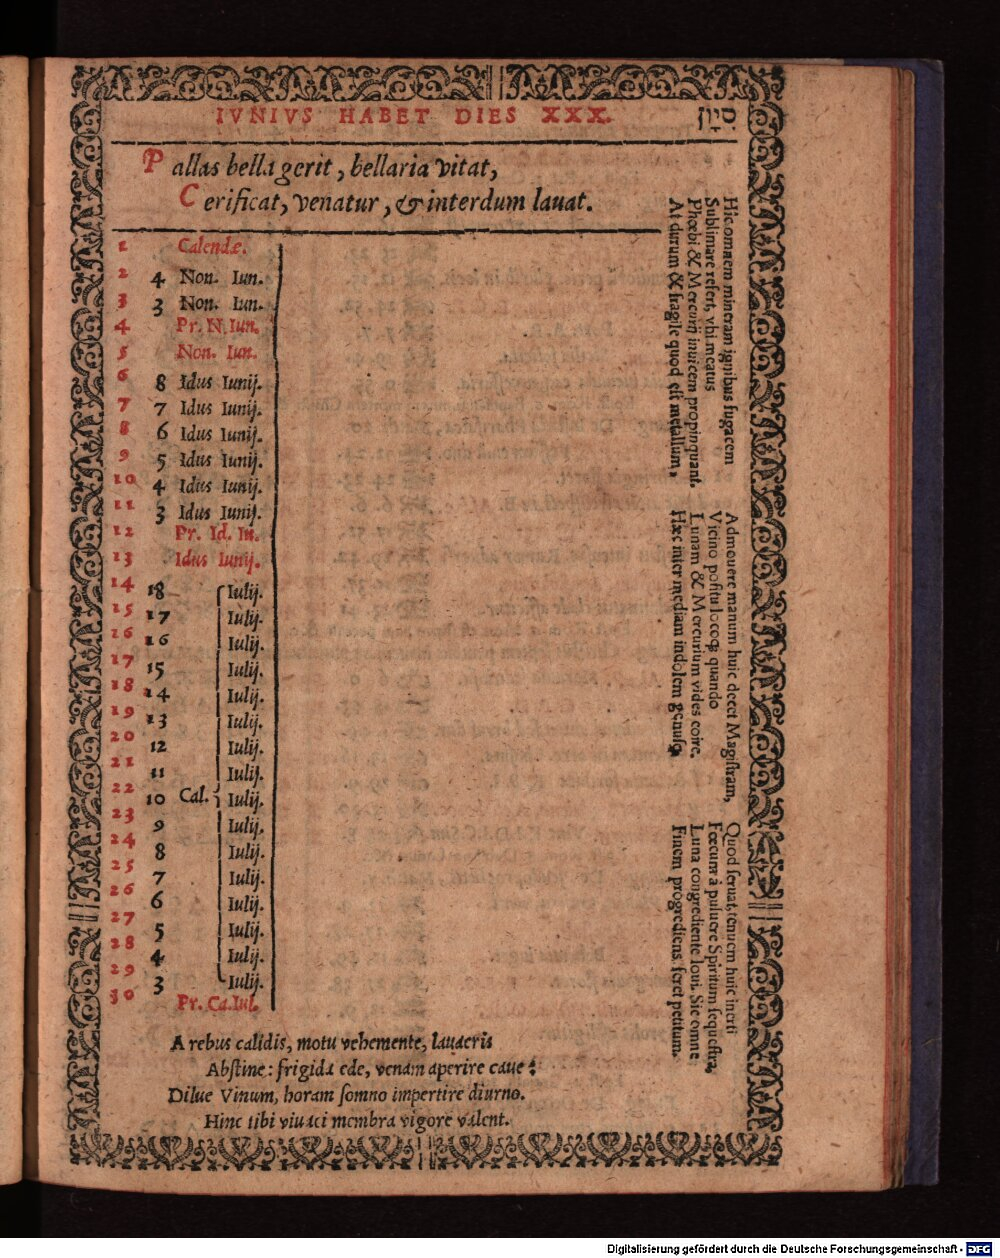 IVNIVS HABET DIES XXX. סִיוָן
Pallas bella gerit, bellaria vitat,
Cerificat, venatur, & interdum lauat.
1 Calendæ.
2 4 Non. Iun.
3 3 Non. Iun.
4 Pr. N. Iun.
5 Non. Iun.
6 8 Idus Iunij.
7 7 Idus Iunij.
8 6 Idus Iunij.
9 5 Idus Iunij.
10 4 Idus Iunij.
11 3 Idus Iunij.
12 Pr. Id. Iu.
13 Idus Iunij.
14 18 Iulij.
15 17 Iulij.
16 16 Iulij.
17 15 Iulij.
18 14 Iulij.
19 13 Iulij.
20 12 Iulij.
21 11 Iulij.
22 10 Cal. Iulij.
23 9 Iulij.
24 8 Iulij.
25 7 Iulij.
26 6 Iulij.
27 5 Iulij.
28 4 Iulij.
29 3 Iulij.
30 Pr. Ca. Iul.
A rebus calidis, motu vehemente, lauacris
Abstine: frigida ede, venam aperire caue:
Dilue Vinum, horam somno impertire diurno.
Hinc tibi viuaci membra vigore valent.
Hic omnem mineram ignibus fugacem
Sublimare refert, vbi meatus
Phœbi & Mercurij inuicem propinquant.
At durum & fragile quod est metallum,
Admouere manum huic decet Magistram,
Vicino positu locoq; quando
Lunam & Mercurium vides coire.
Hæc inter mediam indolem genusq;
Quod seruat, tenuem huic inerti
Fœcum à puluere Spiritum sequestra,
Luna congrediente Ioui. Sic omne
Finem progrediens feret petitum.
Digitalisierung gefördert durch die Deutsche Forschungsgemeinschaft - DFG